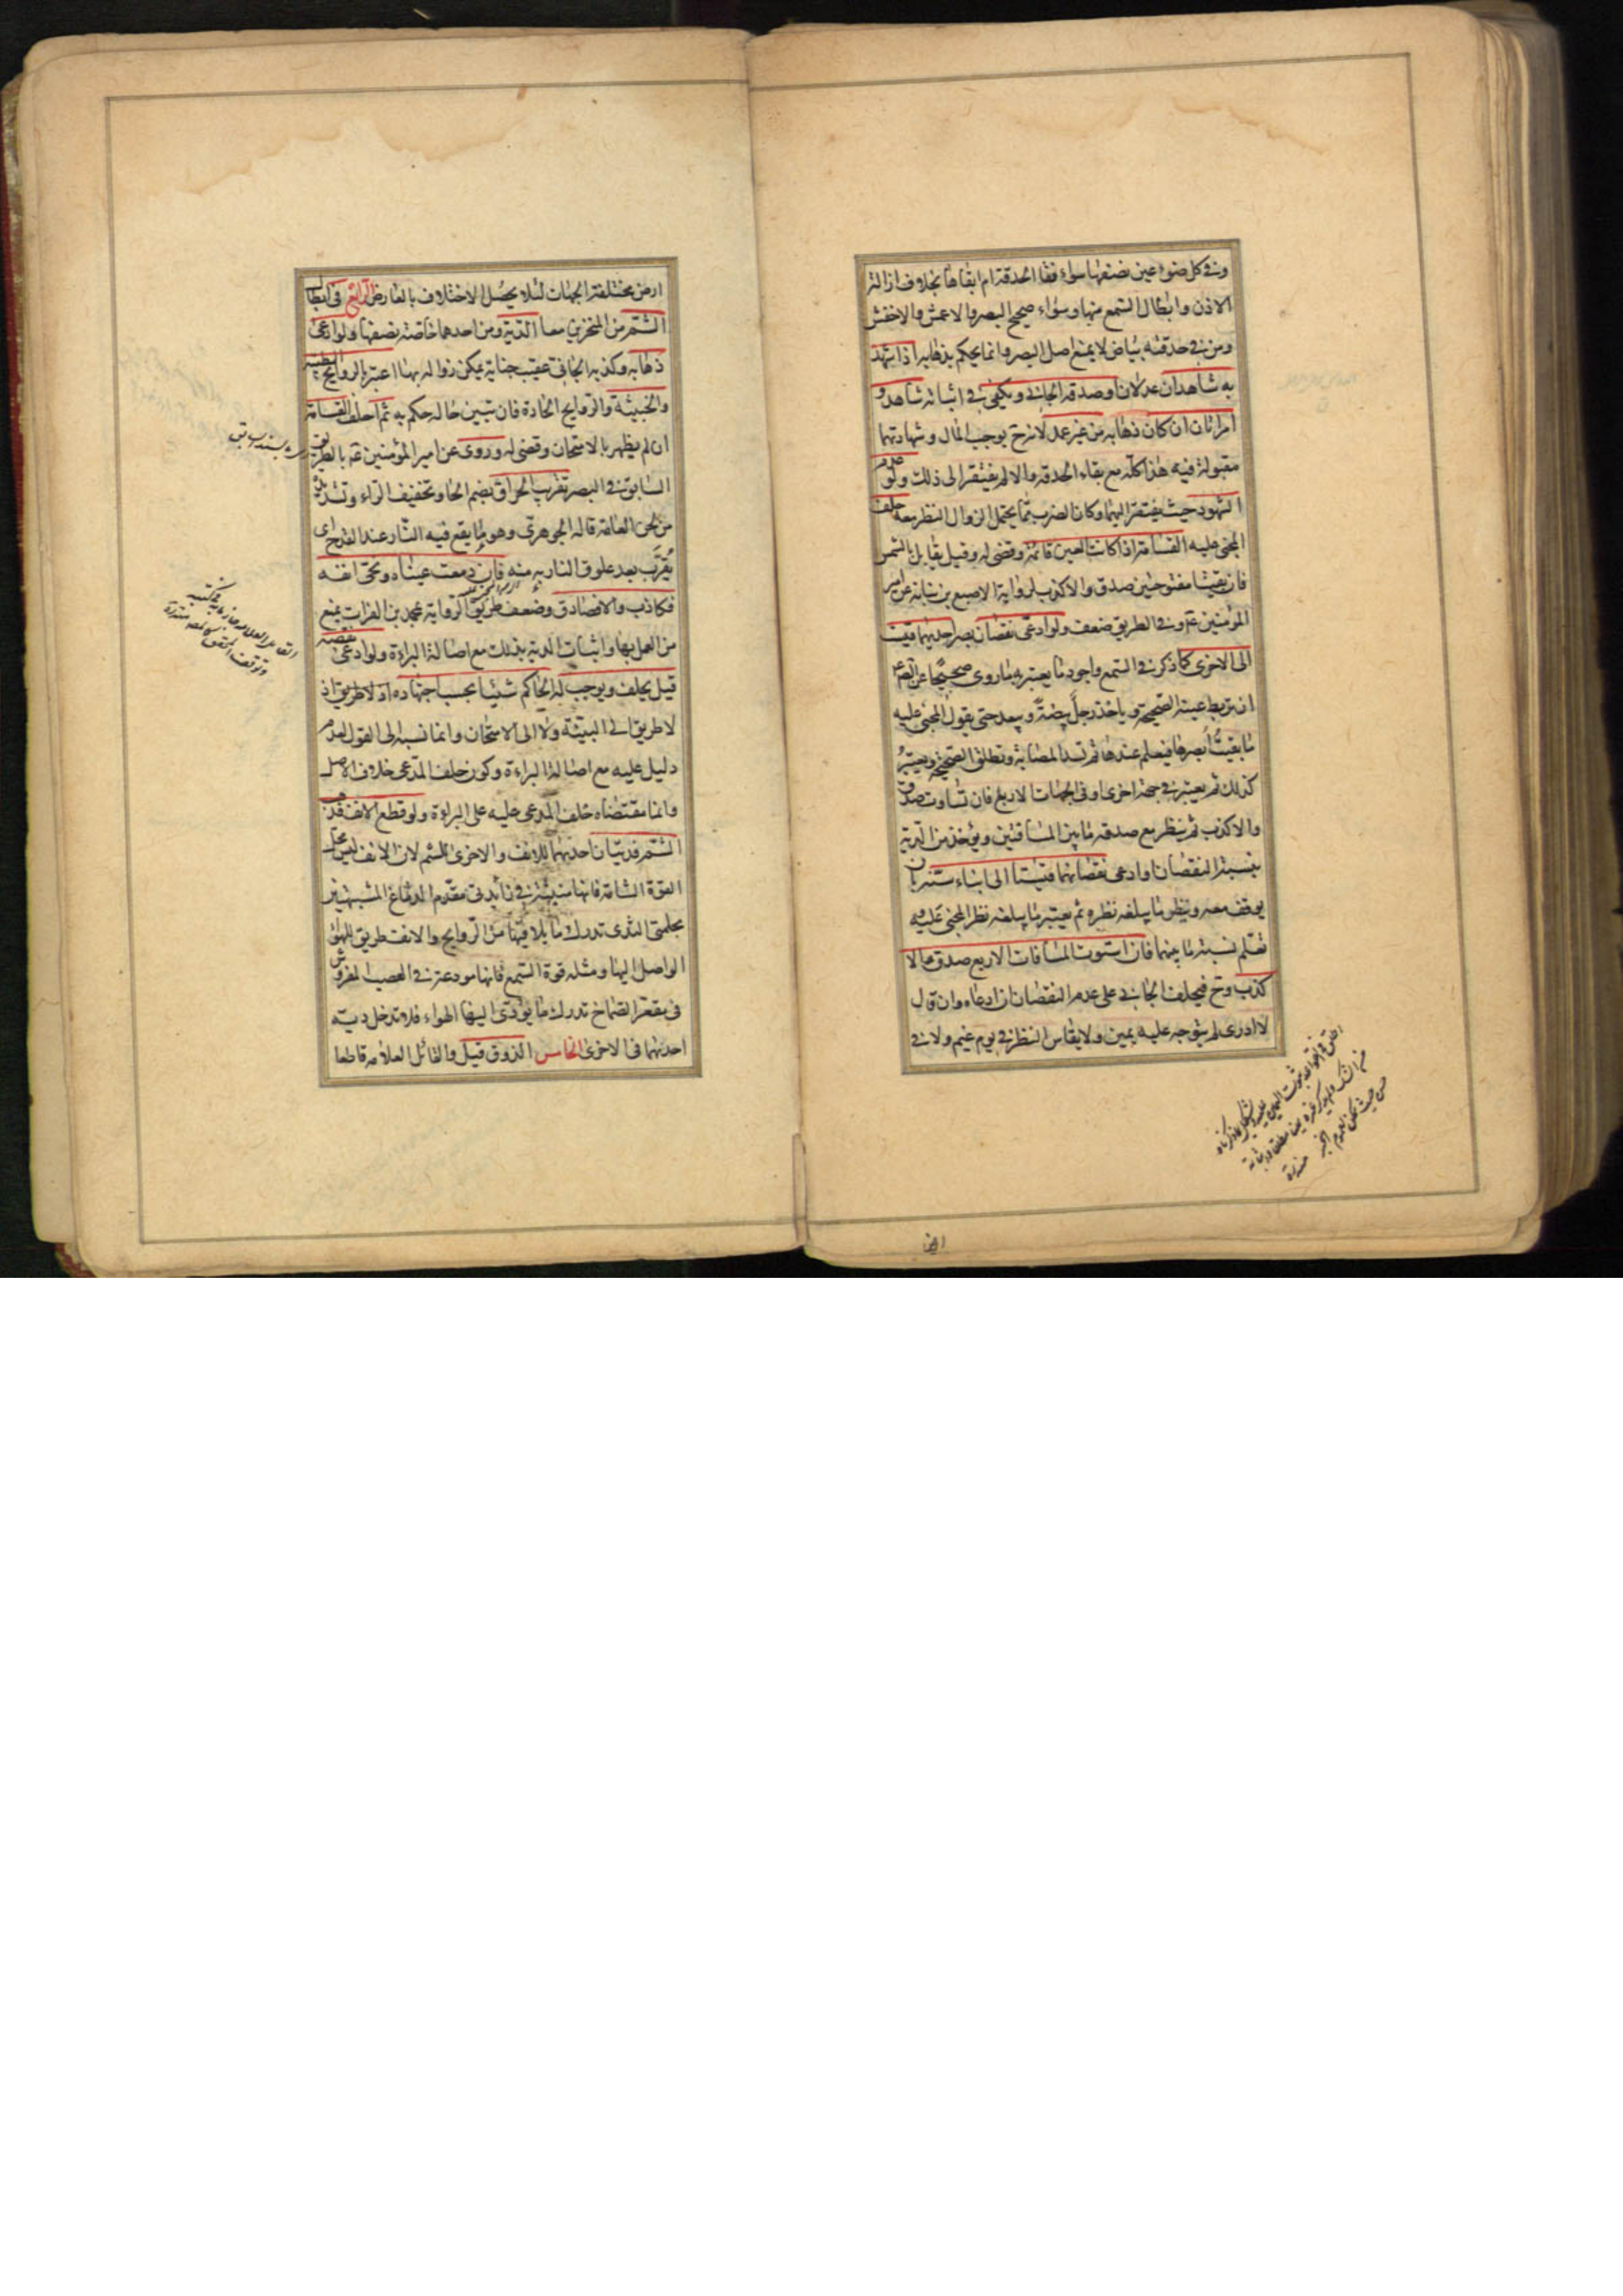 وفي كل ضوء عين نصفها سواء فقا الحدقة ام ابقاها بخلاف ازالة
الاذن وابطال السمع منها وسواء صحيح البصر والاعمش والاخفش
ومن في حدقته بياض لا يمنع اصل البصر وانما يحكم بذهابه اذا شهد
به شاهدان عدلان او صدقه الجاني ويكفي في اثباته شاهد و
امراتان ان كان ذهابه من غير عمد لانه ح يوجب المال وشهادتهما
مقبولة فيه هذا كله مع بقاء الحدقة والا لم يفتقر الى ذلك ولو عدم
الشهود حيث يفتقر اليهما وكان الضرب مما يحتمل الزوال النظر معه حلف
المجني عليه القسامة اذا كانت العين قائمة وقضى له وقيل يقابل بالشمس
فان بقيتا مفتوحتين صدق والا كذب لرواية الاصبغ بن نباتة عن امير
المؤمنين ع وفي الطريق ضعف ولو ادعى نقصان بصر احديهما قيست
الى الاخرى كما ذكر في السمع واجود ما يعتبر به ما روى صحيحا عن الص ع
ان تربط عينه الصحيحة وياخذ رجل بيضة ويبعد حتى يقول المجني عليه
ما بقيت ابصرها فيعلم عندها ثم تشد المصابة وتطلق الصحيحة ويعتبر
كذلك ثم يعتبر في جهة اخرى او في الجهات الاربع فان تساوت صدق
والا كذب ثم ينظر مع صدقه ما بين المسافتين ويؤخذ من الدية
بنسبة النقصان او ادعى نقصانهما قيستا الى ابناء سنه بان
يوقف معه وينظر ما يبلغه نظره ثم يعتبر ما يبلغه نظر المجني عليه
نعلم نسبة ما بينهما فان استوت المسافات الاربع صدق والا
كذب وح فيحلف الجاني على عدم النقصان ان ادعاه وان قال
لا ادرى لم يتوجه عليه يمين ولا يقاس النظر في يوم غيم ولا في
ارض مختلفة الجهات لئلا يحصل الاختلاف بالعارض الرابع في ابطال
الشم من المنخرين معا الدية ومن احدهما خاصة نصفها ولو ادعى
ذهابه وكذبه الجاني عقيب جناية يمكن زواله بها اعتبر بالروايح الطيبة
والخبيثة والروايح الحادة فان تبين حاله حكم به ثم احلف القسامة
ان لم يظهر بالامتحان وقضى له وروى عن امير المؤمنين ع بالطريق
السابق في البصر تقرب الحراق بضم الحا وتخفيف الراء وتشديده
من لحن العامة قاله الجوهري وهو ما يقع فيه النار عند القدح اى
يقرب بعد علوق النار به منه فان دمعت عيناه ونحى انفه
فكاذب والا فصادق وضعف طريق الرواية محمد بن الفرات يمنع
من العمل بها واثبات الدية بذلك مع اصالة البراءة ولو ادعى نقصه
قيل يحلف ويوجب له الحاكم شيئا بحسب اجتهاده اذ لا طريق اذ
لا طريق الى البينة ولا الى الامتحان وانما نسبه الى القول لعدم
دليل عليه مع اصالة البراءة وكون حلف المدعى خلاف الاصل
وانما مقتضاه حلف المدعى عليه على البراءة ولو قطع الانف فذهب
الشم فديتان احديهما للانف والاخرى للشم لان الانف ليس محل
القوة الشامة فانها منبثة في زائدتى مقدم الدماغ المشبهتين
بحلمتى الثدى تدرك ما يلاقيها من الروايح والانف طريق للهواء
الواصل اليها ومثله قوة السمع فانها مودعة في العصب المفروش
فى مقعر الصماخ تدرك ما يؤدى اليها الهواء فلا تدخل دية
احديهما فى الاخرى الخامس الذوق قيل والقائل العلامة قاطعا